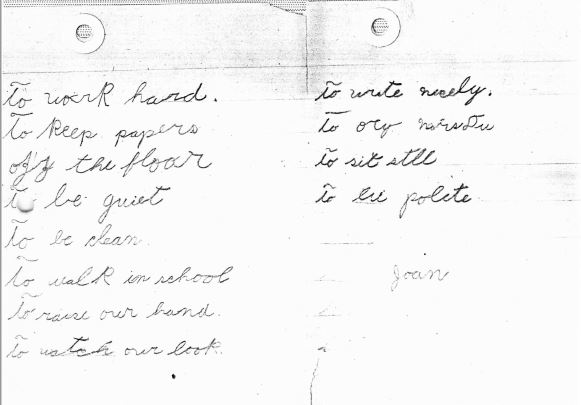 to work hard.
to keep papers
off the floor
to be quiet
to be clean
to walk in school
to raise our hand.
to watch our book.
to write nicely.
to
to sit still
to be polite
Joan